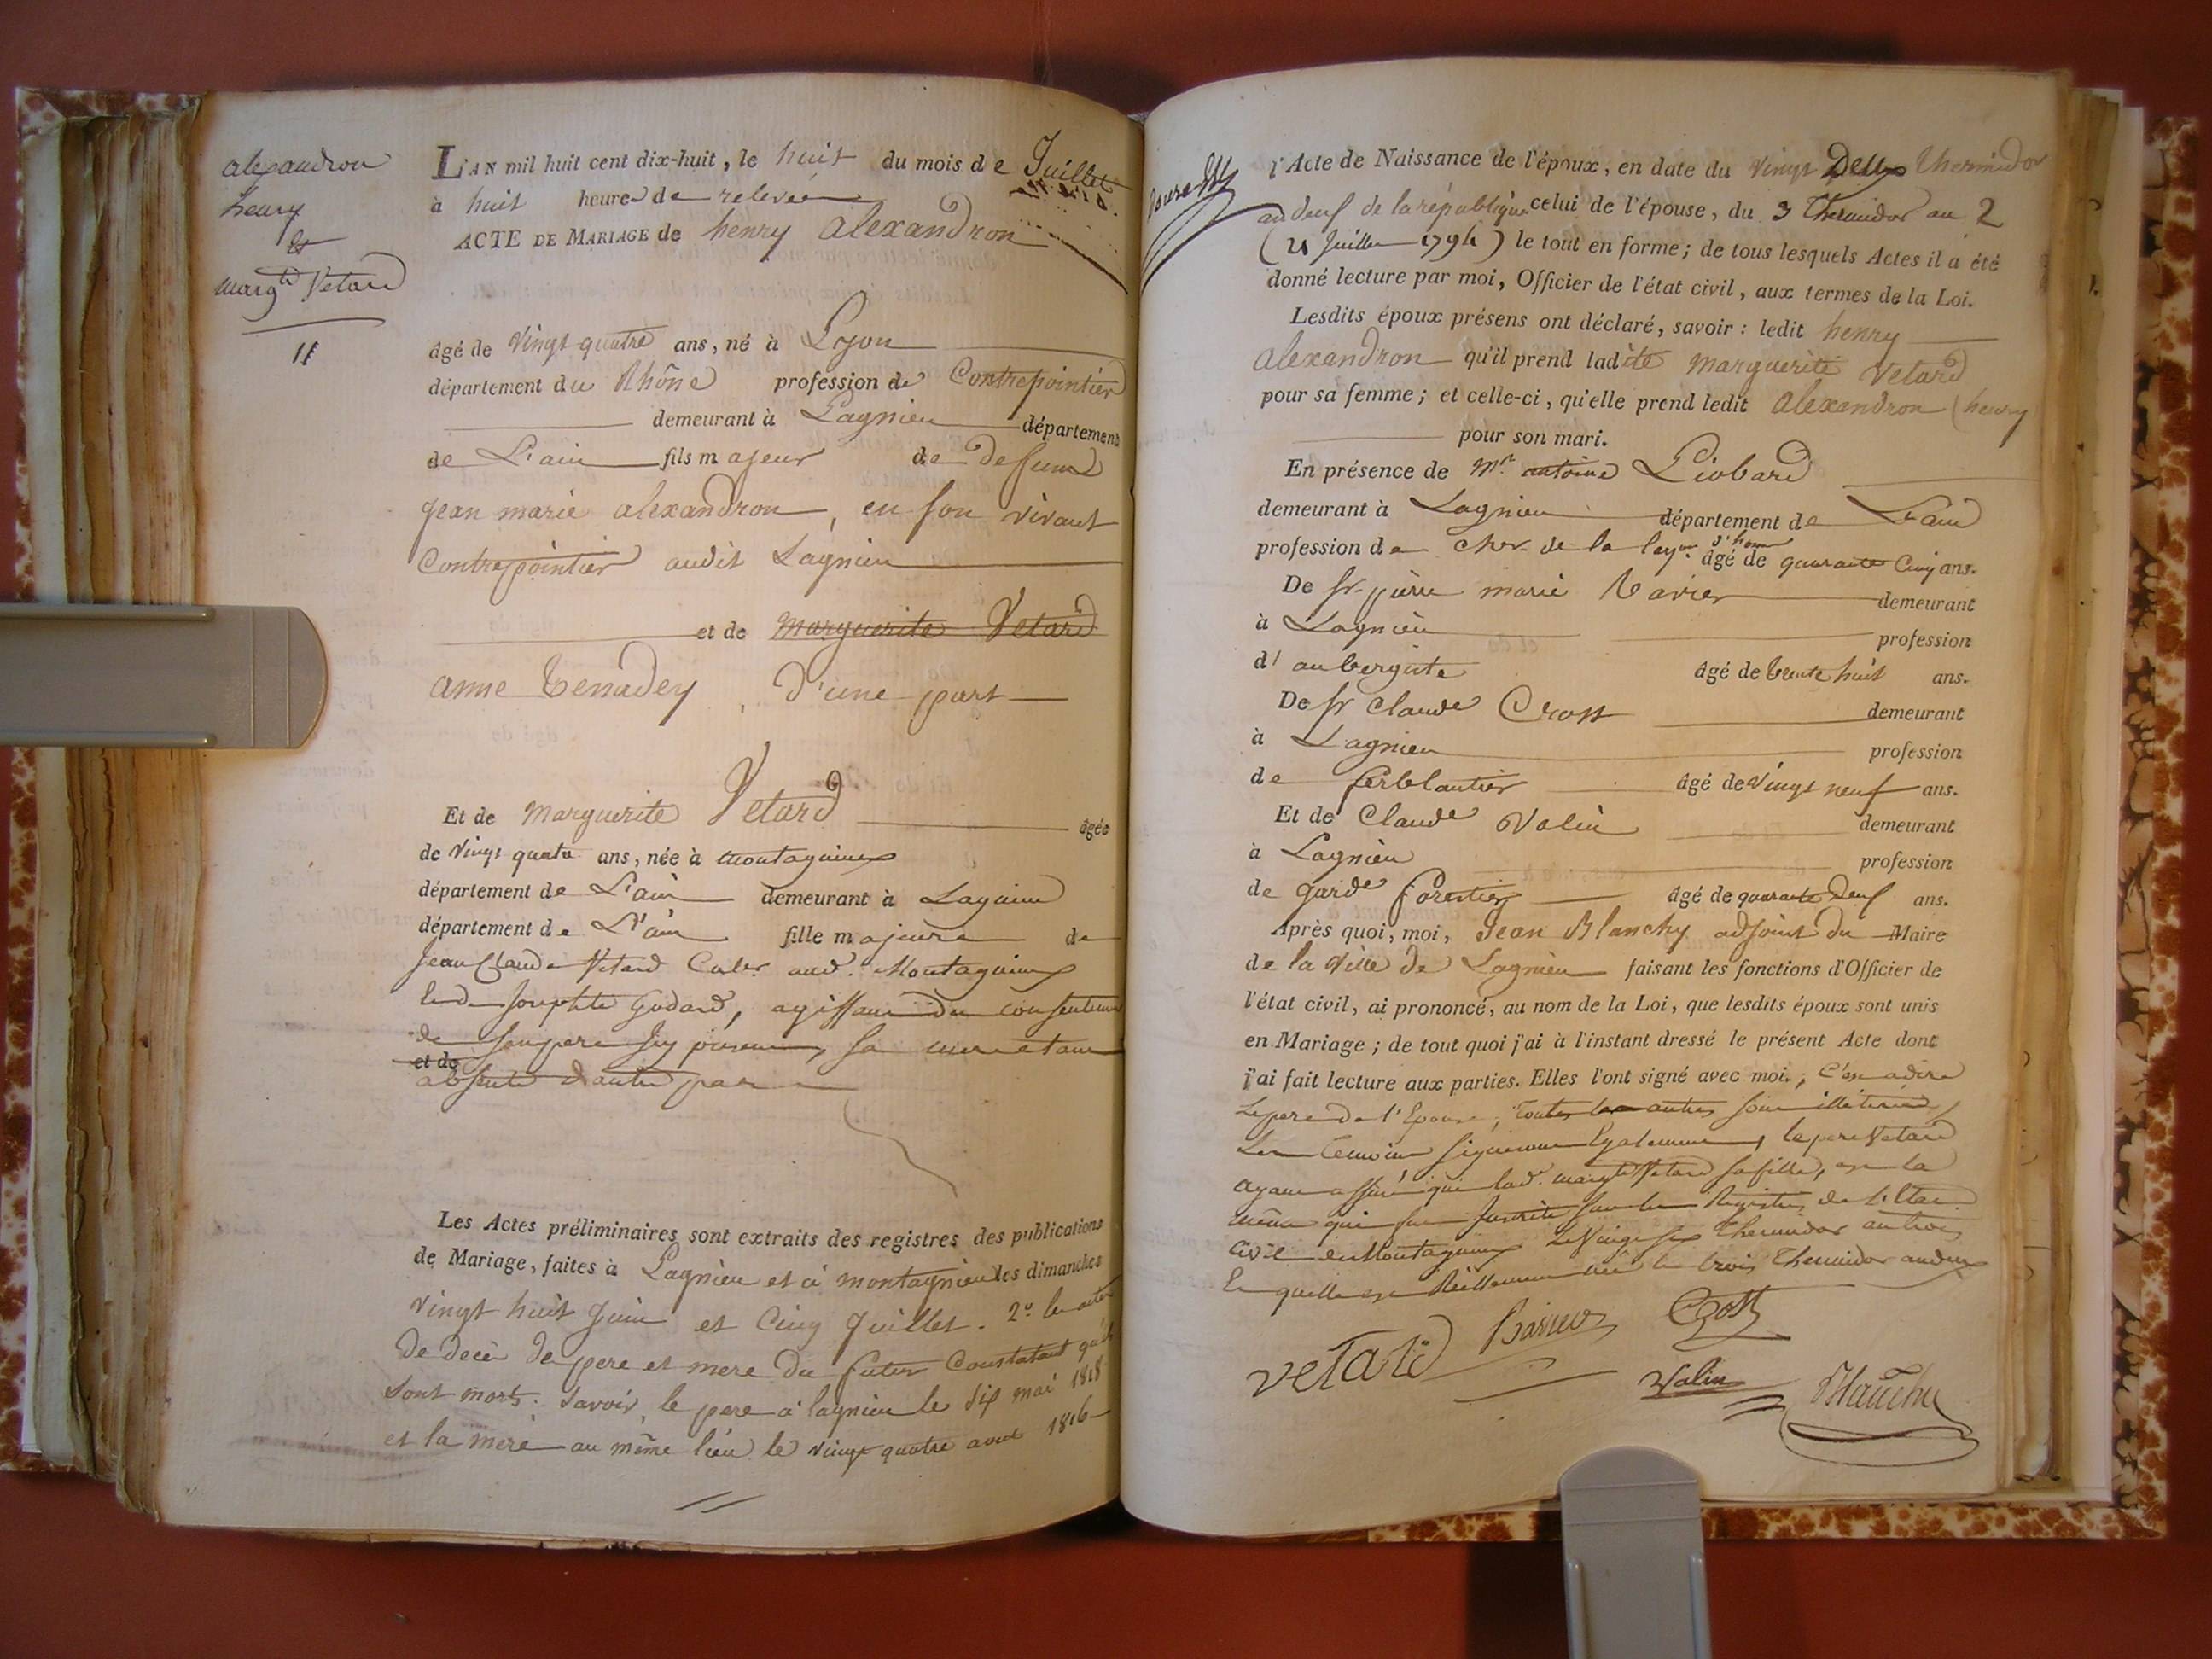 alexandron
henry
et
marg.te Vetard
11
L'AN mil huit cent dix-huit, le huit du mois de Juillet
à huit heures de relevée
ACTE DE MARIAGE de henry alexandron
âgé de vingt quatre ans, né à Lyon
département du Rhône profession de Contrepointier
demeurant à Lagnieu département
de L'ain fils majeur de defunt
jean marie alexandron, en son vivant
Contrepointier audit Lagnieu
et de Marguerite Vetard
anne Tenadey, d'une part
Et de Marguerite Vetard âgée
de vingt quatre ans, née à Montagnieux
département de L'ain demeurant à Lagnieu
département de L'ain fille majeure de
jean Claude Vetard Cult.r aud. Montagnieux
Godard, agissant du consentement
de son pere icy present, sa mere etant
et de
absente d'autre part
Les Actes préliminaires sont extraits des registres des publications
de Mariage, faites à Lagnieu et à montagnieu les dimanches
vingt huit Juin et Cinq Juillet. 2.o les actes
de décès de pere et mere du futur Constatant qu'ils
sont morts: savoir, le pere à lagnieu le dix mai 1818
et la mere au même lieu le vingt quatre aout 1816
l'Acte de Naissance de l'époux, en date du vingt Deux thermidor
an deuf de la république celui de l'épouse, du 3 Thermidor an 2
(21 Juillet 1794) le tout en forme; de tous lesquels Actes il a été
donné lecture par moi, Officier de l'état civil, aux termes de la Loi.
Lesdits époux présens ont déclaré, savoir: ledit henry
alexandron qu'il prend ladite marguerite Vetard
pour sa femme; et celle-ci, qu'elle prend ledit alexandron (henry
pour son mari.
En présence de M.r antoine Liobard
demeurant à Lagnieu département de L'ain
profession de Cher de la leg.on d'honn âgé de quarante Cinq ans.
De Sr pierre marie Barier demeurant
à Lagnieu profession
d'aubergiste âgé de trente huit ans.
De Sr Claude Crost demeurant
à Lagnieu profession
de ferblantier âgé de vingt neuf ans.
Et de Claude Valin demeurant
à Lagnieu profession
de garde forestier âgé de quarante deuf ans.
Après quoi, moi, Jean Blanchy adjoint du Maire
de la ville de Lagnieu faisant les fonctions d'Officier de
l'état civil, ai prononcé, au nom de la Loi, que lesdits époux sont unis
en Mariage; de tout quoi j'ai à l'instant dressé le présent Acte dont
j'ai fait lecture aux parties. Elles l'ont signé avec moi., C'est a dire
Le pere de l'Epouse, toutes les autres sont illeterées,
Les temoins signeront Egalement, le pere Vetard
ayant assuré que lad.e marg.te Vetard sa fille, est la
même qui fut inscrite sur les Registres de l'Etat
Civil de Montagnieux Le vingt six Thermidor an trois
Le quelle est Réellement née le trois Thermidor an deux
Vetard Barier Crost
Valin Blanchy